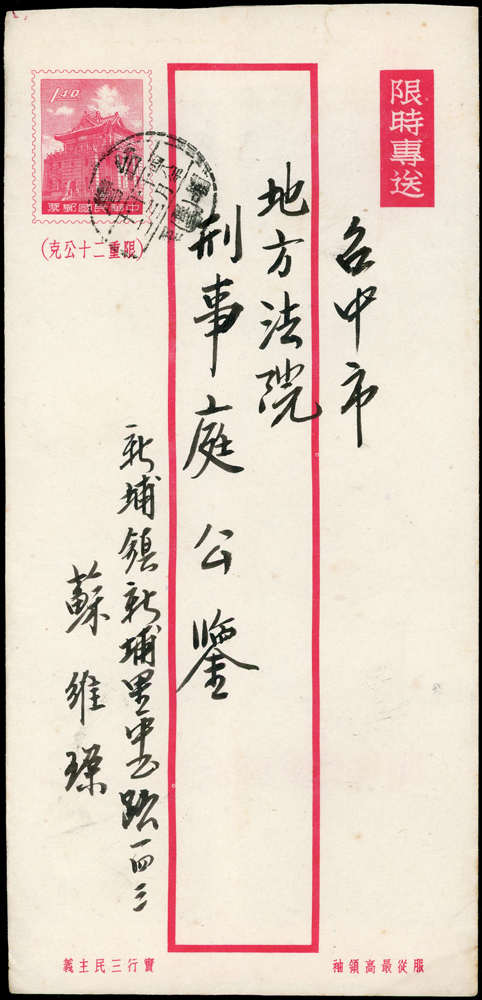 限時專送
台中市
地方法院
刑事庭公鑒
新埔鎮新埔里中正路一四三
蘇維
1.40
中華民國郵票
(限重二十公克)
服從最高領袖
實行三民主義